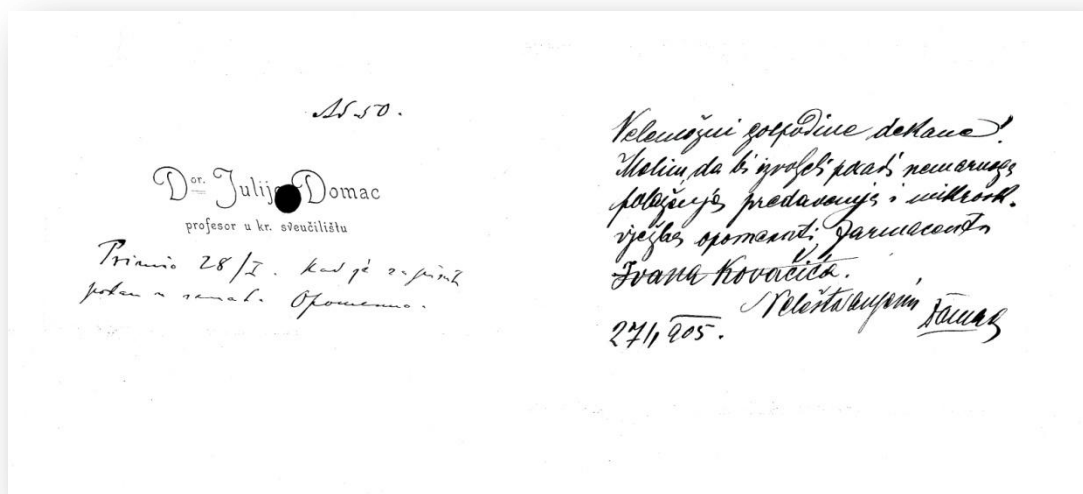 Ad 50.
Dor. Julije Domac
profesor u kr. sveučilištu
Primio 28/I. kad je
Opomenuo.
Velemožni gospodine dekane!
Molim da bi izvoljeli poradi nemarnoga
polaženja predavanja i mikrosk.
vježba opomenuti farmaceuta
Ivana Kovačića.
Veleštovanjem Domac
27/1 905.